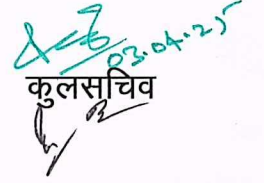 03.04.25
कुलसचिव